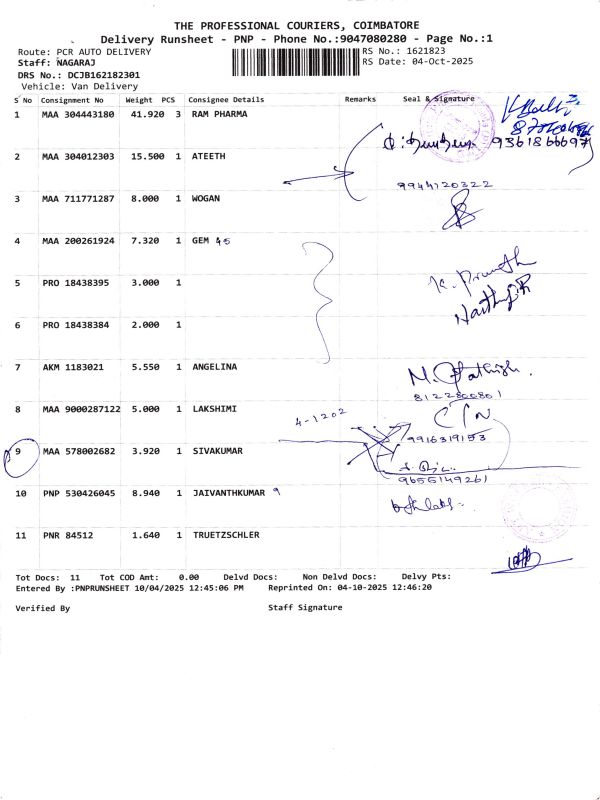 THE PROFESSIONAL COURIERS, COIMBATORE
Delivery Runsheet - PNP - Phone No.:9047080280 - Page No.:1
Route: PCR AUTO DELIVERY RS No.: 1621823
Staff: NAGARAJ RS Date: 04-Oct-2025
DRS No.: DCJB162182301
Vehicle: Van Delivery
S No Consignment No Weight PCS Consignee Details Remarks Seal & Signature
1 MAA 304443180 41.920 3 RAM PHARMA
9361866697
2 MAA 304012303 15.500 1 ATEETH
9944120322
3 MAA 711771287 8.000 1 WOGAN
4 MAA 200261924 7.320 1 GEM 45
5 PRO 18438395 3.000 1
6 PRO 18438384 2.000 1
7 AKM 1183021 5.550 1 ANGELINA
8122800801
8 MAA 9000287122 5.000 1 LAKSHIMI
4-1202
9916319153
9 MAA 578002682 3.920 1 SIVAKUMAR
9655149261
10 PNP 530426045 8.940 1 JAIVANTHKUMAR 9
11 PNR 84512 1.640 1 TRUETZSCHLER
Tot Docs: 11 Tot COD Amt: 0.00 Delvd Docs: Non Delvd Docs: Delvy Pts:
Entered By :PNPRUNSHEET 10/04/2025 12:45:06 PM Reprinted On: 04-10-2025 12:46:20
Verified By Staff Signature